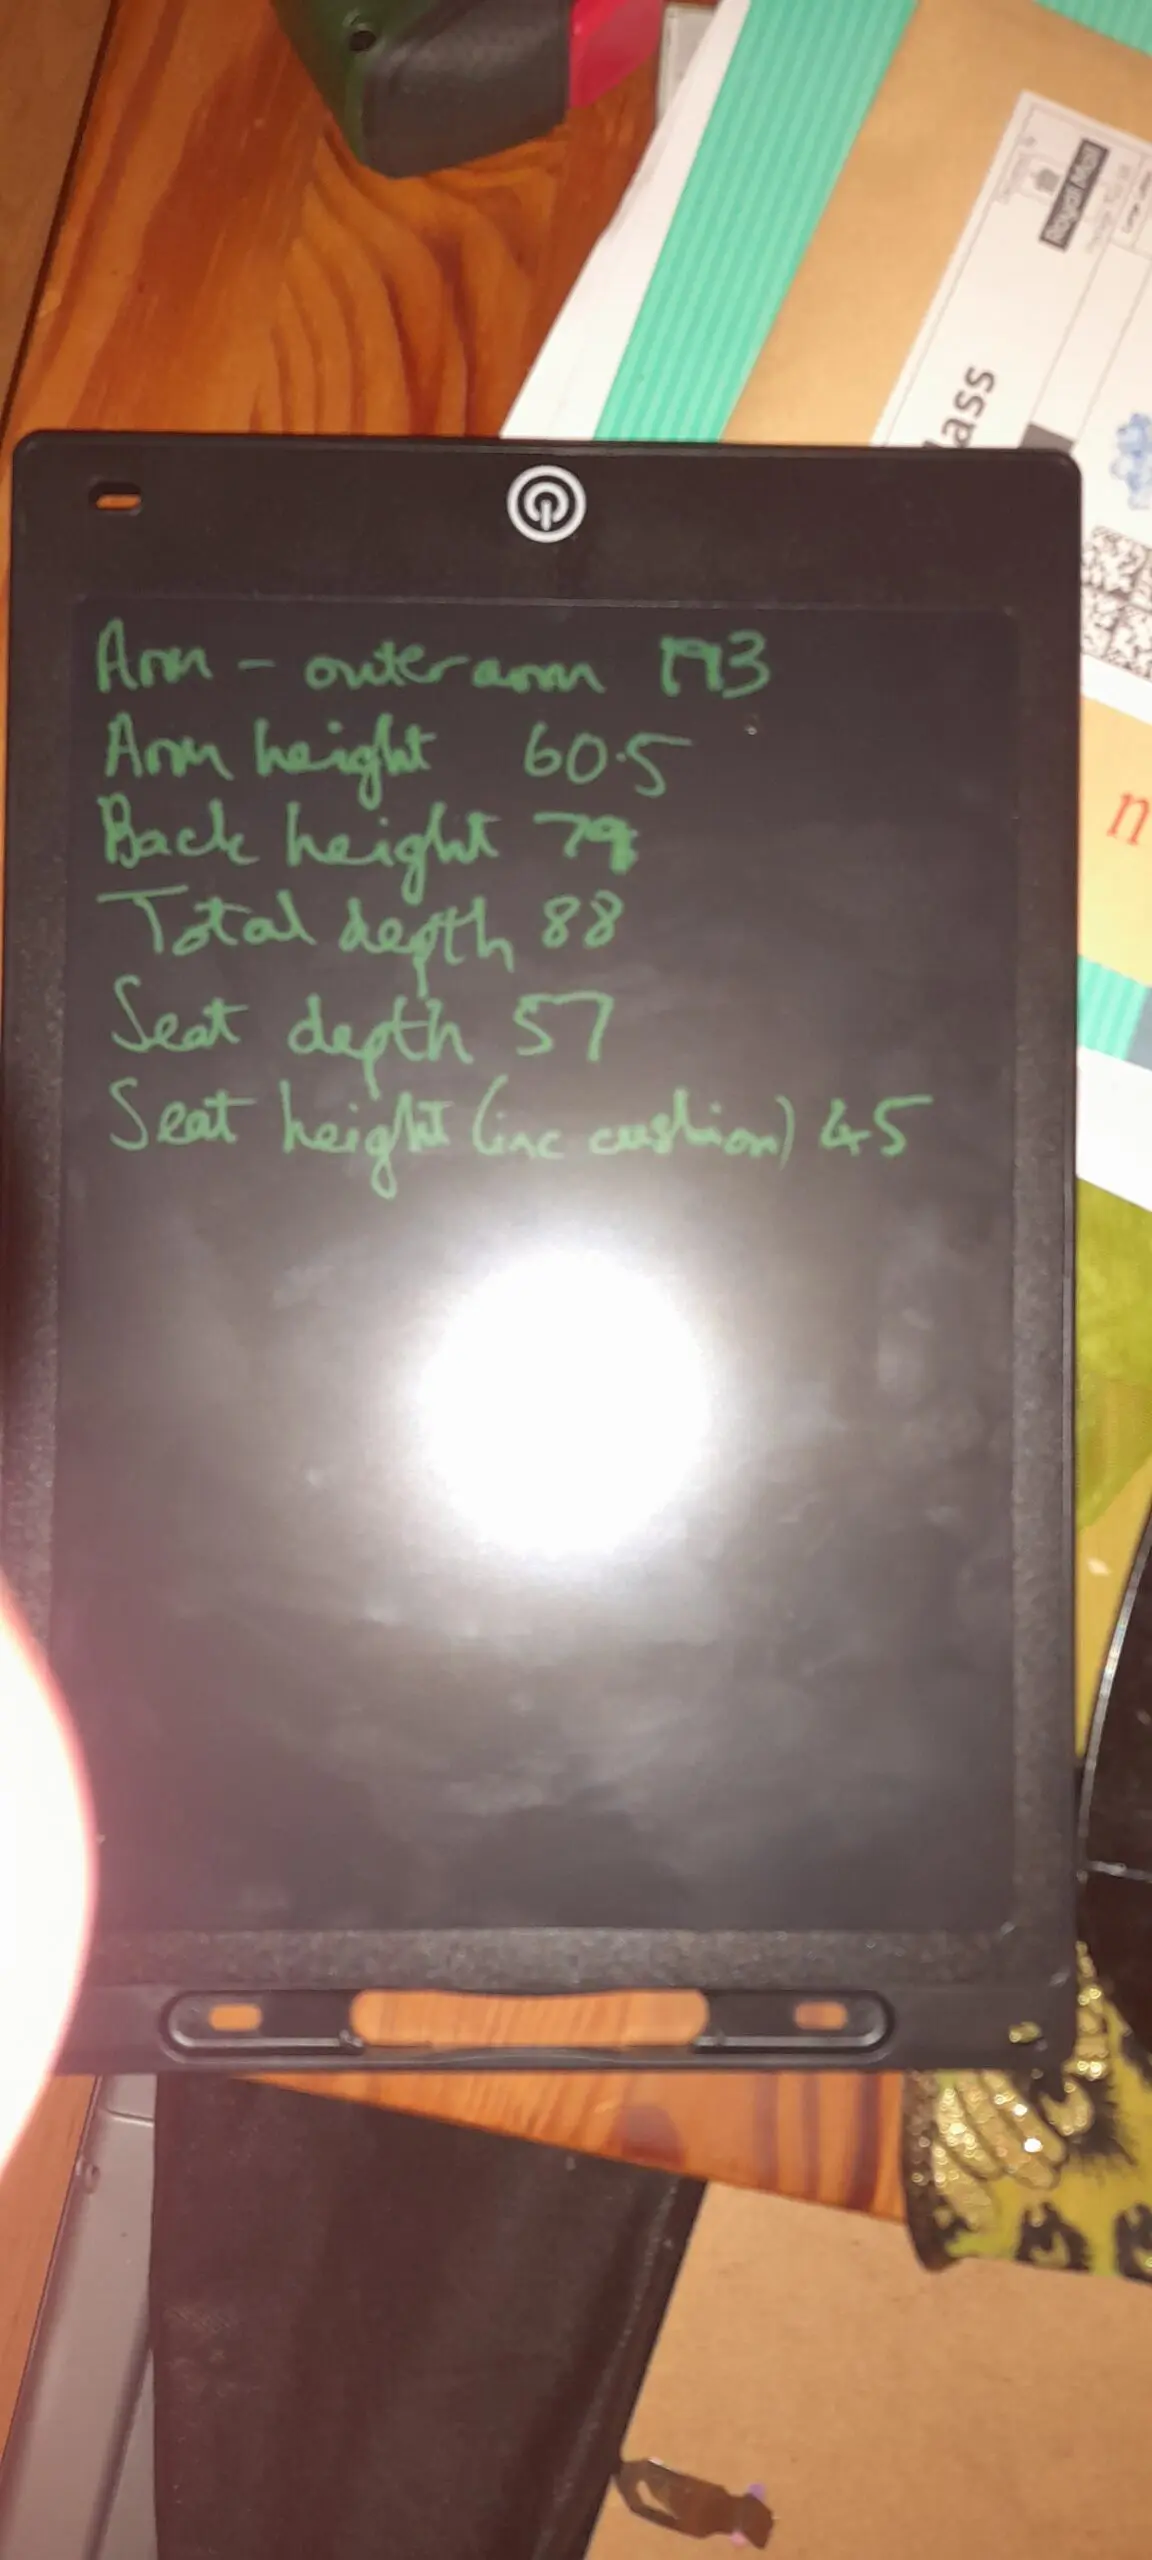 Arm - outer arm 193
Arm height 60.5
Back height 79
Total depth 88
Seat depth 57
Seat height (inc cushion) 45
Royal Mail
lass
n